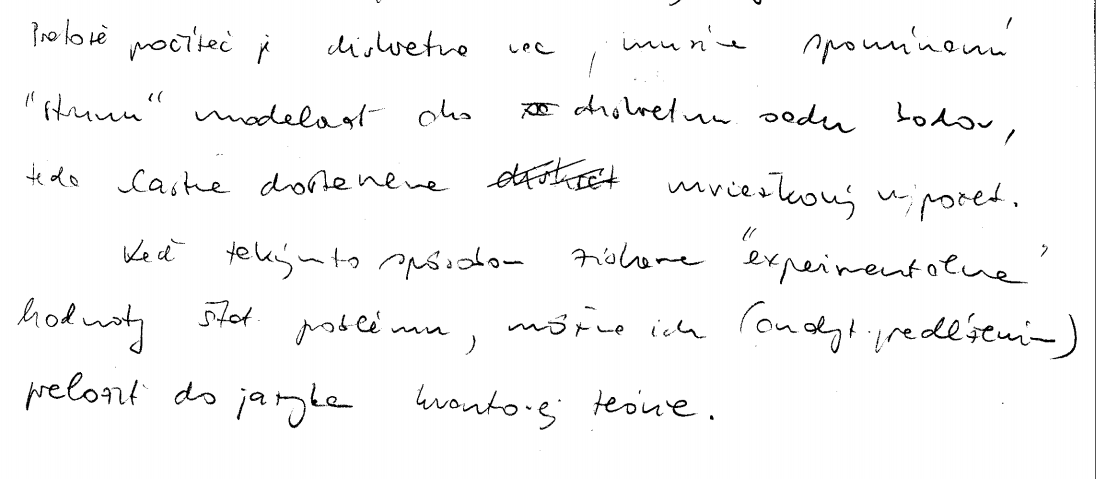 Pretože počítač je diskrétna vec, musíme spomínanú
"strunu" modelovať ako diskrétnu sadu bodov,
teda vlastne dostaneme mriežkový výpočet.
Keď takýmto spôsobom získame "experimentálne"
hodnoty štat. problému, môžme ich (analyt. predĺžením)
preložiť do jazyka kvantovej teórie.